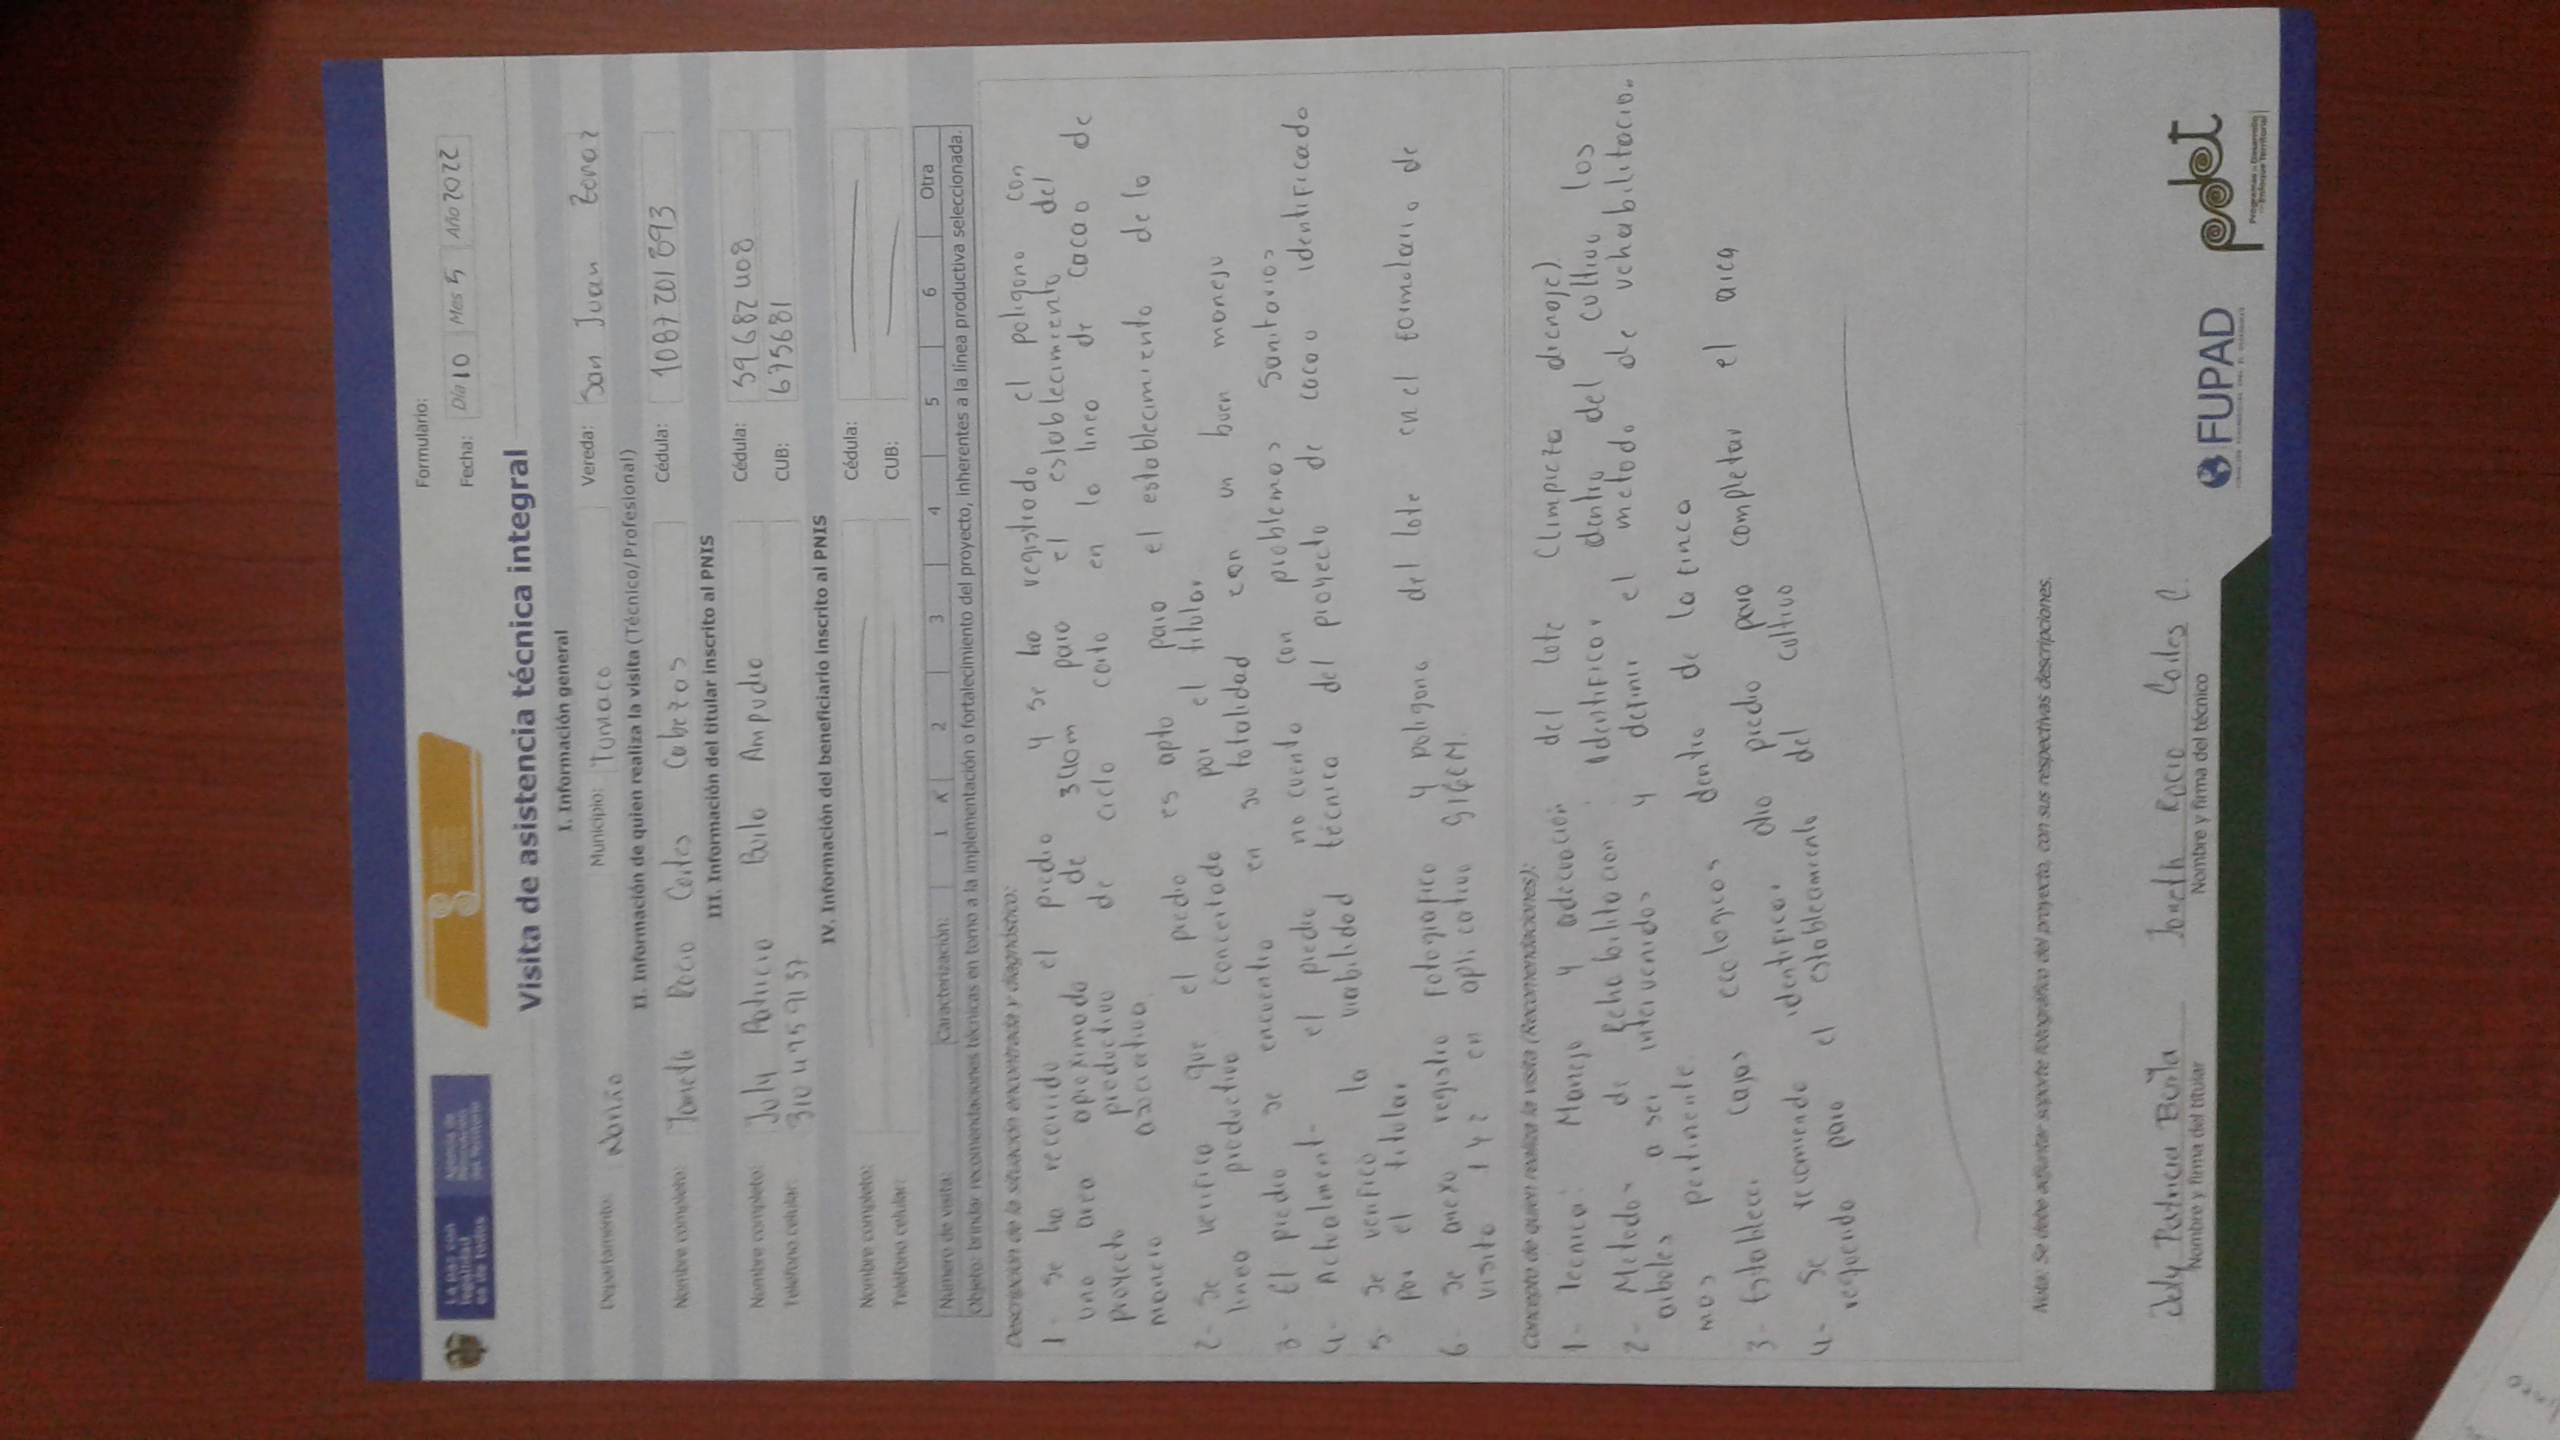 La paz con legalidad es de todos
Agencia de Renovación del Territorio
Formulario:
Fecha: Día 10 Mes 5 Año 2022
Visita de asistencia técnica integral
I. Información general
Departamento: Nariño Municipio: Tumaco Vereda: San Juan
II. Información de quien realiza la visita (Técnico/Profesional)
Nombre completo: Janeth Rocio Cortes Cabezas Cédula: 1087201893
III. Información del titular inscrito al PNIS
Nombre completo: July Patricia Buila Ampudia Cédula: 59687408
Teléfono celular: 3104759137 CUB: 675681
IV. Información del beneficiario inscrito al PNIS
Nombre completo: Cédula:
Teléfono celular: CUB:
Número de visita: Caracterización: 1 X 2 3 4 5 6 Otra
Objeto: brindar recomendaciones técnicas en torno a la implementación o fortalecimiento del proyecto, inherentes a la línea productiva seleccionada.
Descripción de la situación encontrada y diagnóstico:
1- se ha recorrido el predio y se ha registrado el poligono con
una area aproximada de para el establecimiento del
proyecto productivo de ciclo corto en la linea de cacao de
manera asociativa.
2- se verifica que el predio es apto para el establecimiento de la
linea productiva concertado por el titular.
3- El predio se encuentra en su totalidad con un buen manejo
4- Actualment- el predio no cuenta con problemas sanitarios
5- se verifico la viabilidad técnica del proyecto de cacao identificado
por el titular
6- se anexa registro fotografico y poligono del lote en el formulario de
visita 1 y 2 en aplicativo
Concepto de quien realiza la visita (Recomendaciones):
1- Tecnica: Manejo y adecuación del lote (limpieza drenaje).
2- Metodos de Rehabilitacion: identificar dentro del cultivo los
arboles a ser intervenidos y definir el metodo de rehabilitacion
mas pertinente.
3- Establecer cajas ecologicas dentro de la finca
4- Se recomienda identificar otro predio para completar el area
requerida para el establecimiento del cultivo
Nota: Se debe adjuntar soporte fotográfico del proyecto, con sus respectivas descripciones.
July Patricia Buila
Nombre y firma del titular
Janeth Rocio Cortes C.
Nombre y firma del técnico
FUPAD
pdet
Programas de Desarrollo
con Enfoque Territorial